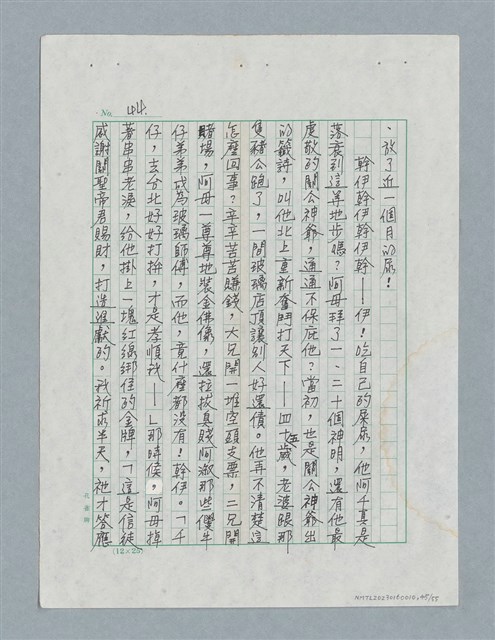 No. 44.
、放了近一個月的尿!
幹伊幹伊幹伊幹——伊!吃自己的屎尿,他阿千真是
落衰到這等地步嗎?阿母拜了一、二十個神明,還有他最
虔敬的關公神爺,通通不保庇他?當初,也是關公神爺出
的籤詩,叫他北上重新奮鬥打天下——四十五歲,老婆跟那
隻豬公跑了,一間玻璃店頂讓別人好還債。他再不清楚這
怎麼回事?辛辛苦苦賺錢,大兄開一堆空頭支票,二兄開
賭場,阿母一尊尊地裝金佛像,還拉拔真賤阿淑那些個牛
仔弟弟成為玻璃師傅,而他,竟什麼都沒有!幹伊。「千
仔,去台北好好打拚,才是孝順我——」那時候,阿母掉
著串串老淚,給他掛上一塊紅線綁住的金牌,「這是信徒
感謝關聖帝君賜財,打造進獻的。我祈求半天,祂才答應
(12×25)
NMTL20270180010,45/55